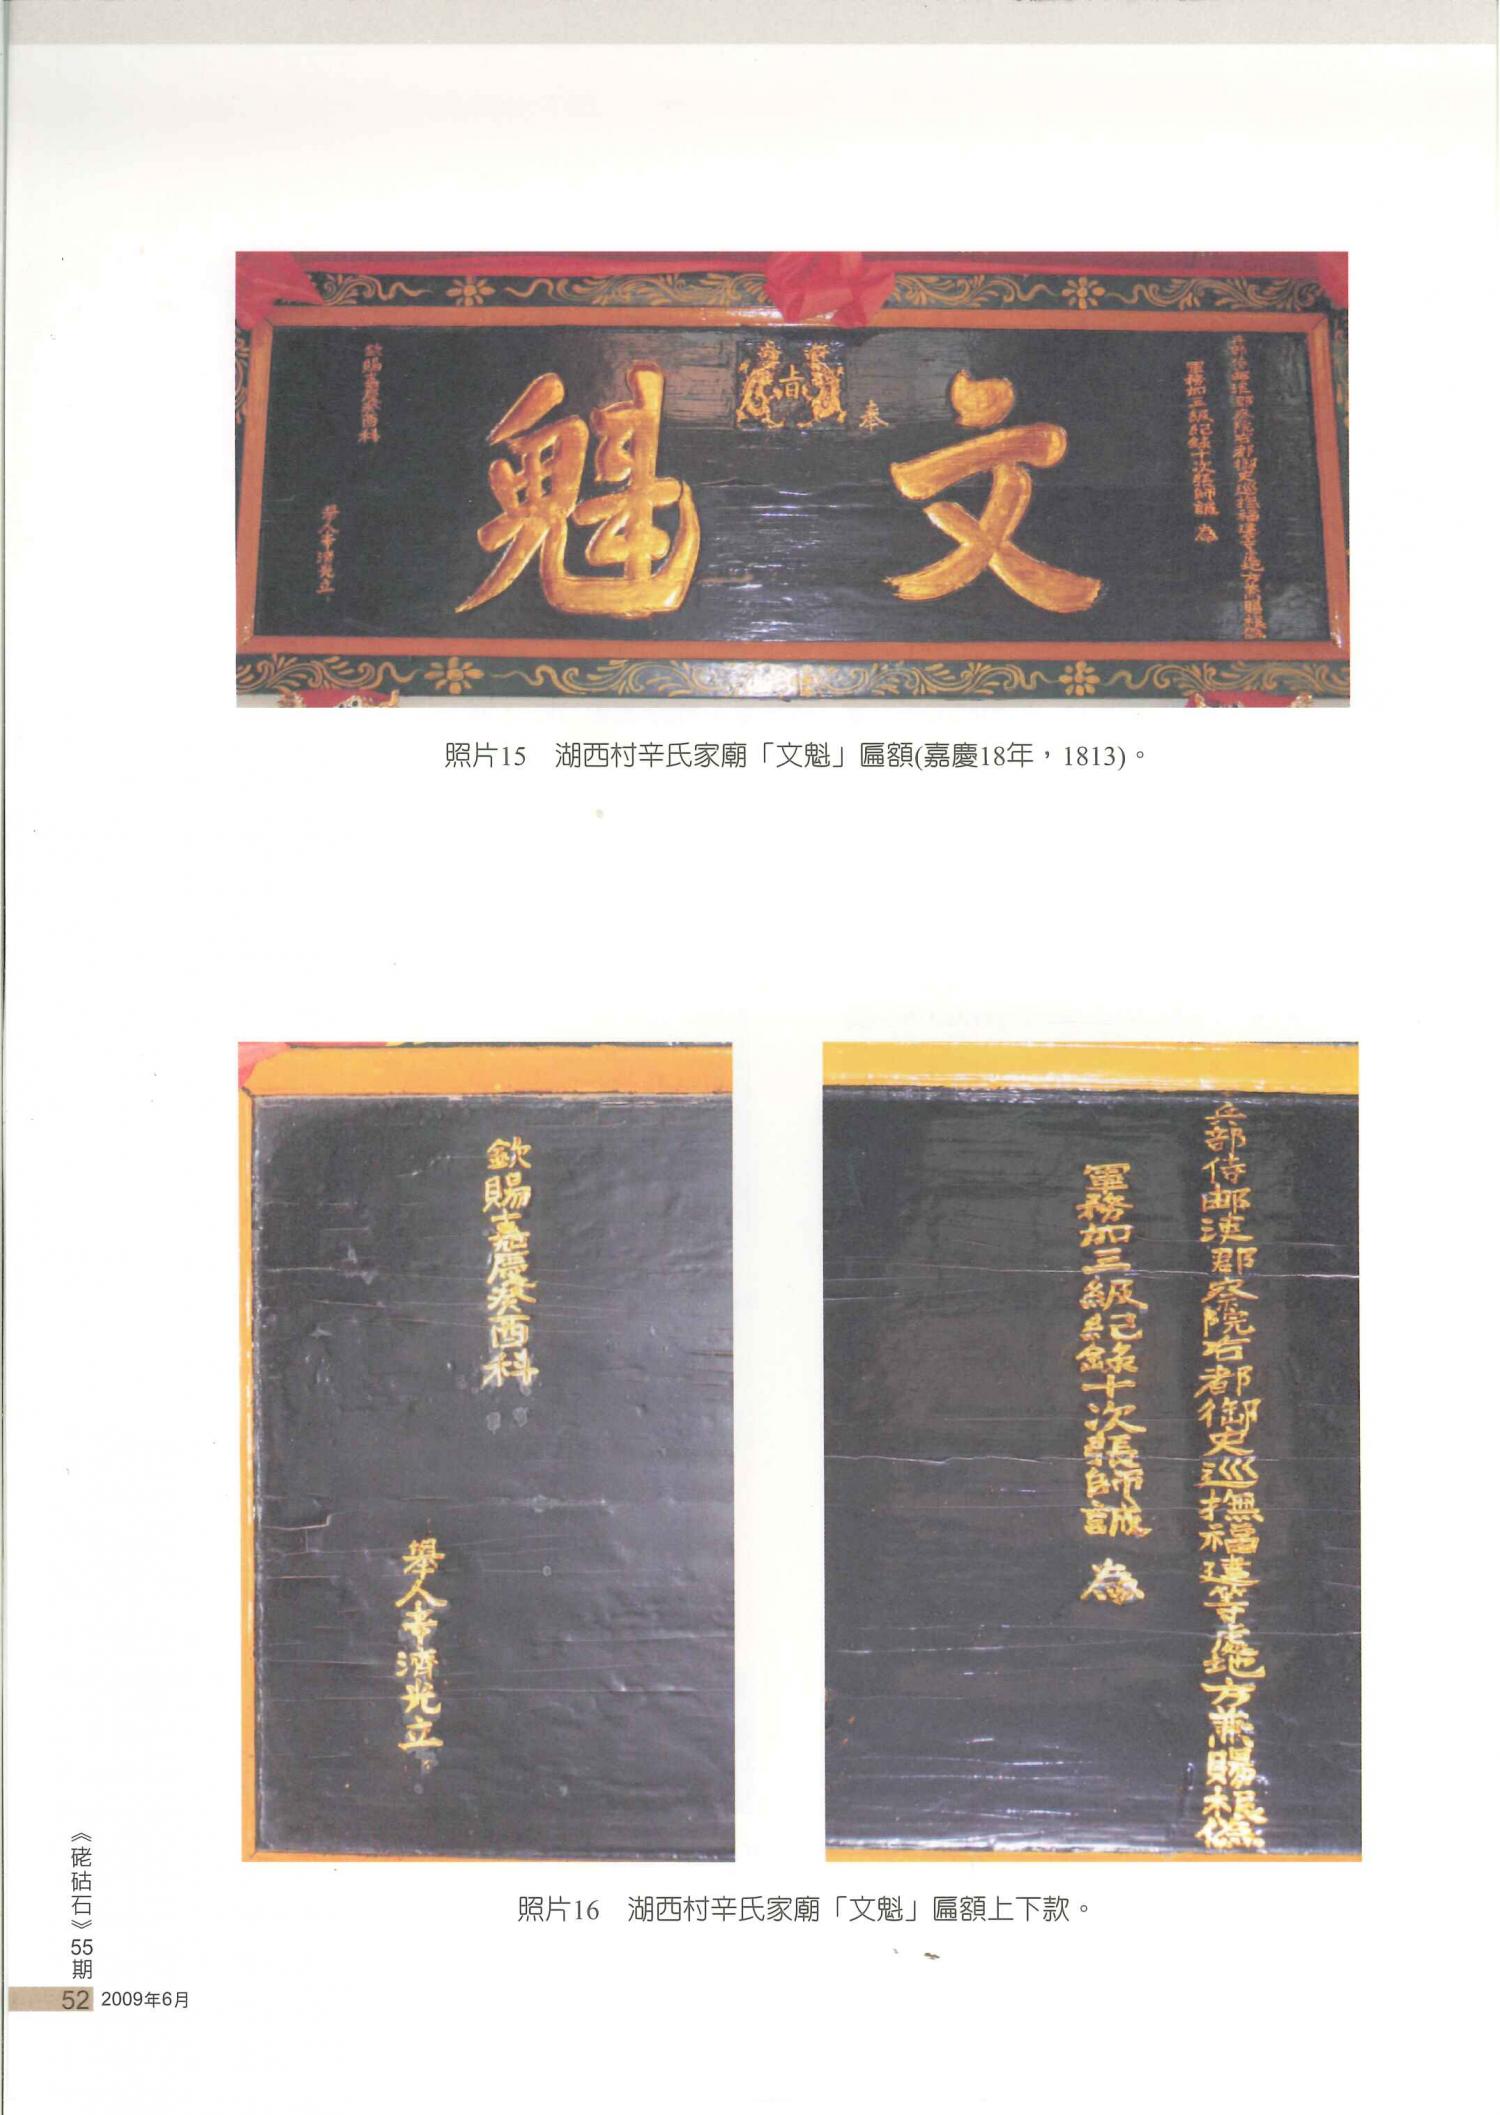 文魁
奉
上旨
兵部侍郎都察院右都御史巡撫福建等處地方兼
軍務加三級紀錄十次張師誠 為
欽賜嘉慶癸酉科
舉人辛濟光立
照片15 湖西村辛氏家廟「文魁」匾額(嘉慶18年,1813)。
欽賜嘉慶癸酉科
舉人辛濟光立
兵部侍郎都察院右都御史巡撫福建等處地方兼賜
軍務加三級紀錄十次張師誠 為
照片16 湖西村辛氏家廟「文魁」匾額上下款。
《硓𥑮石》55期
52 2009年6月